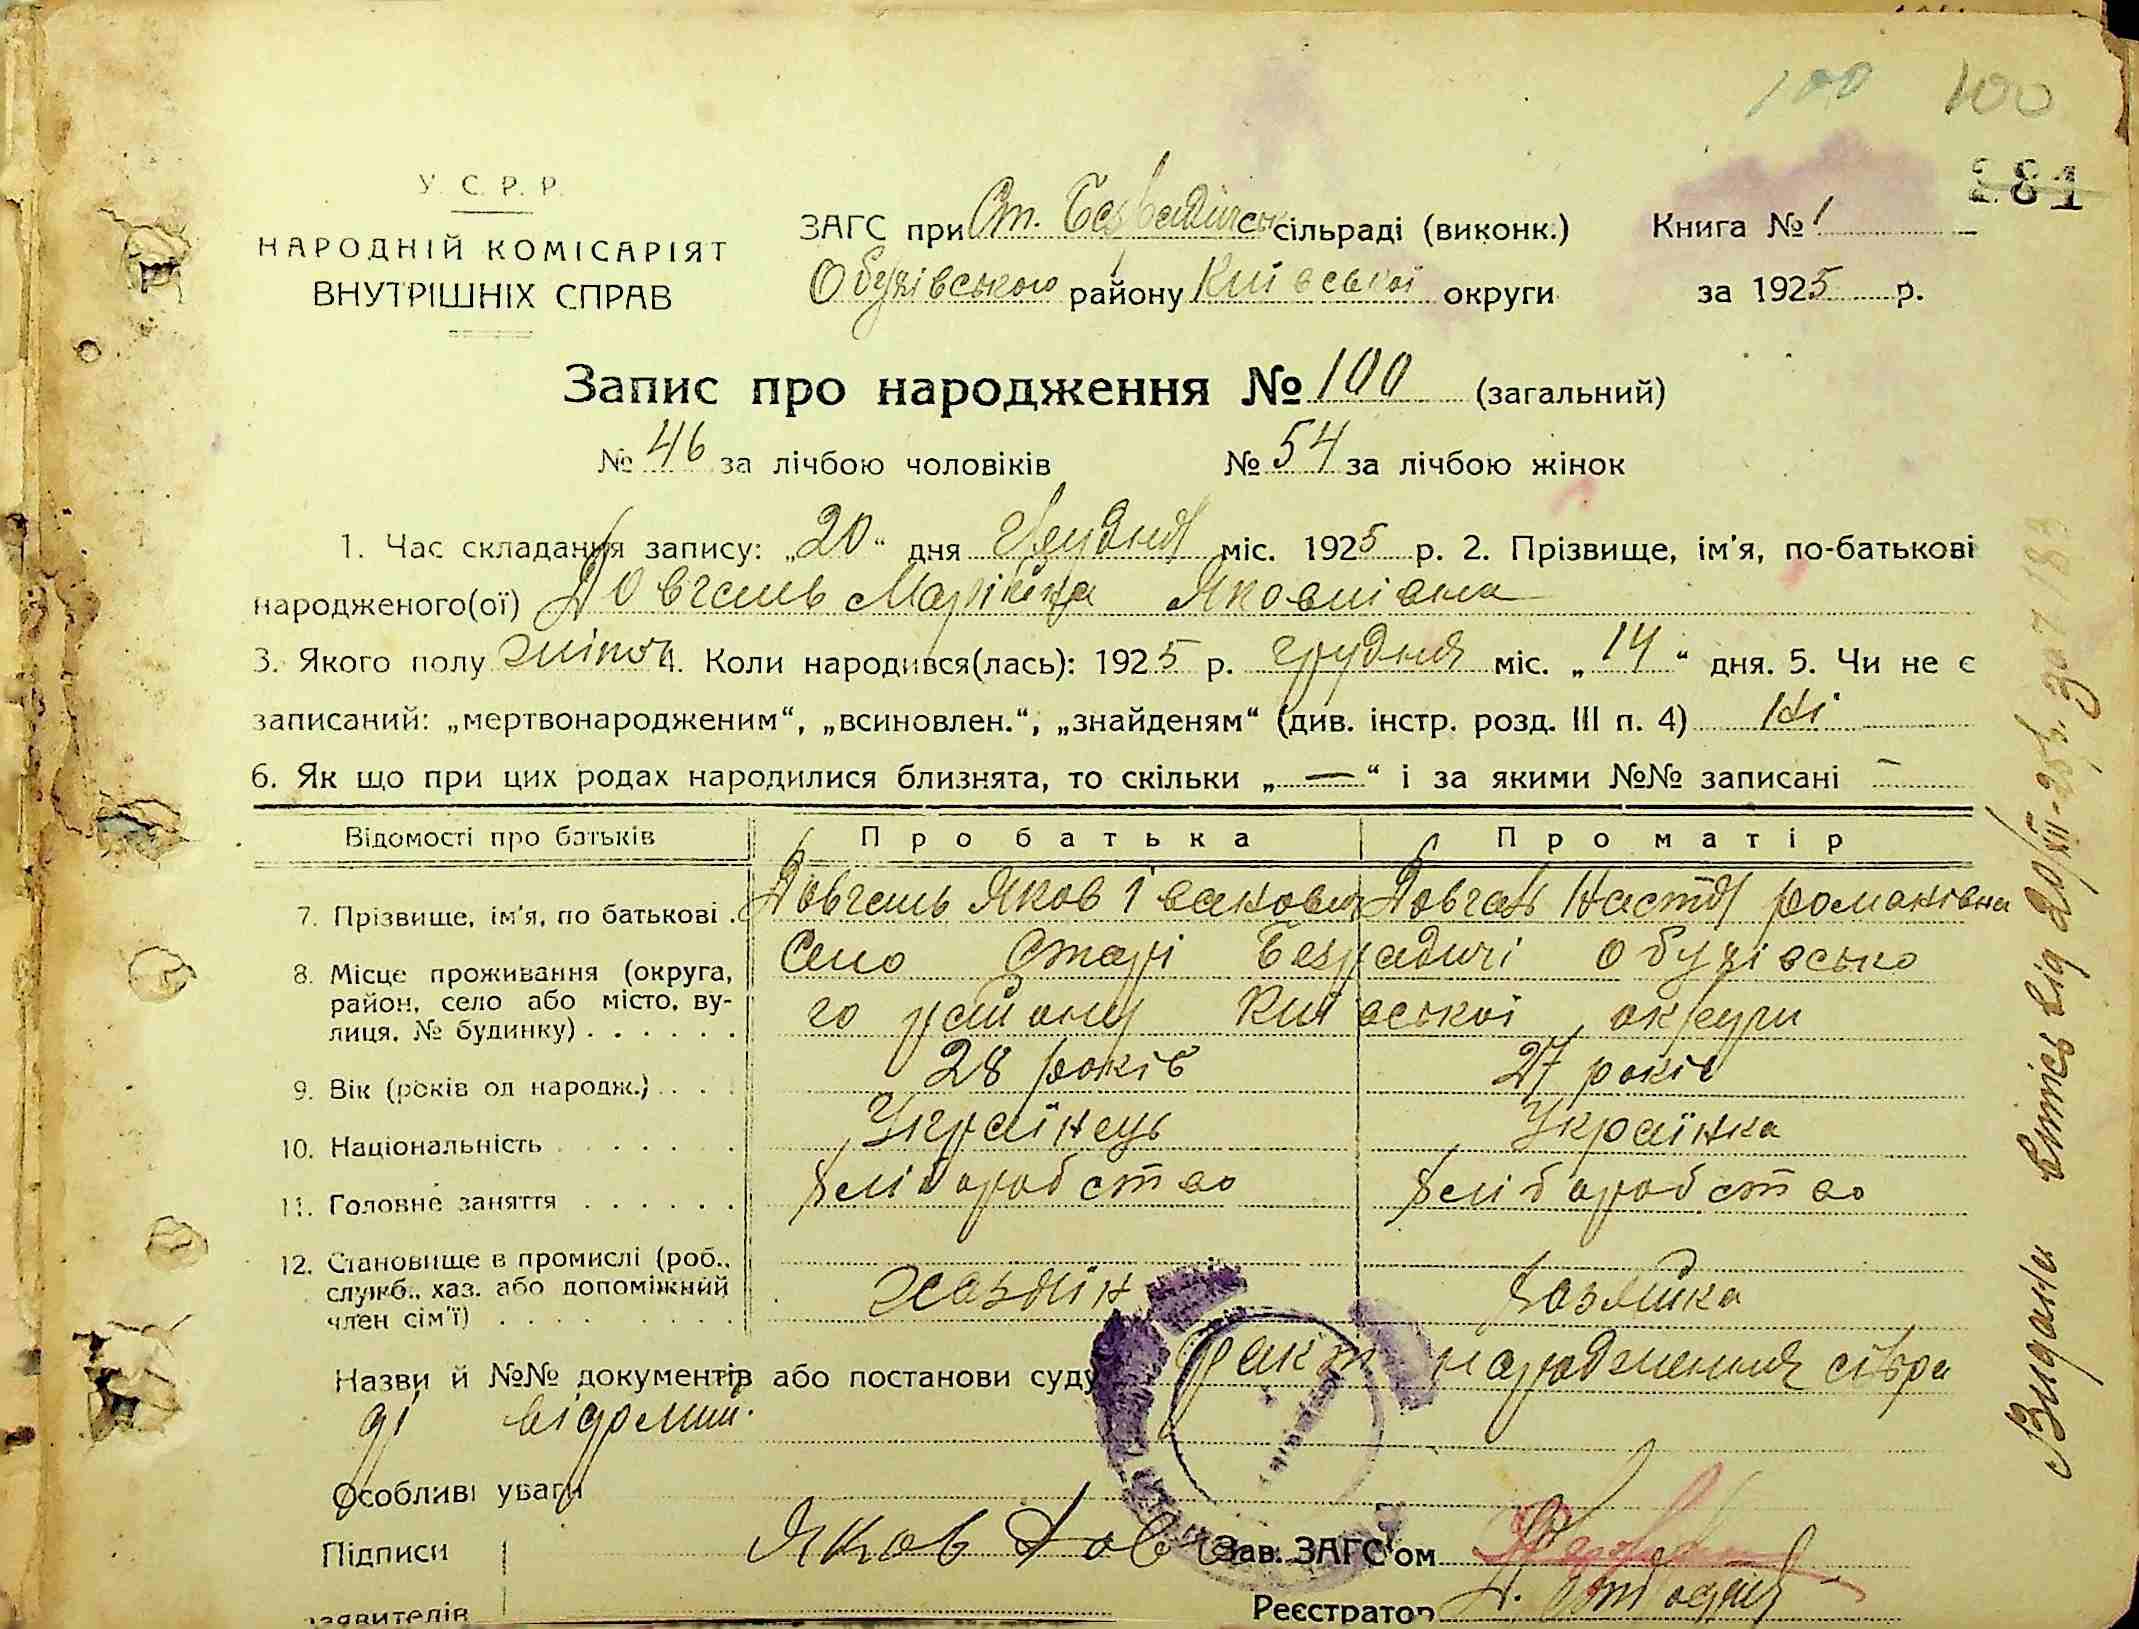 100 100
281
У. С. Р. Р.
НАРОДНІЙ КОМІСАРІЯТ
ВНУТРІШНІХ СПРАВ
ЗАГС при Ст. Безрадичськ сільраді (виконк.) Книга № 1
Обухівського району Київської округи за 1925 р.
Запис про народження № 100 (загальний)
№ 46 за лічбою чоловіків № 54 за лічбою жінок
1. Час складання запису: „20“ дня грудня міс. 1925 р. 2. Прізвище, ім'я, по-батькові
народженого(ої) Довгань Яковлівна
3. Якого полу жіноч 4. Коли народився(лась): 1925 р. грудня міс. „14“ дня. 5. Чи не є
записаний: „мертвонародженим“, „всиновлен.“, „знайденям“ (див. інстр. розд. III п. 4) Ні
6. Як що при цих родах народилися близнята, то скільки „—“ і за якими №№ записані —
Відомості про батьків Про батька Про матір
7. Прізвище, ім'я, по батькові . Довгань Яков Іванович Довгань Настя романівна
8. Місце проживання (округа, район, село або місто, вулиця, № будинку) . . . . . . Село Старі Безрадичі Обухівсько
го району Київської округи
9. Вік (років од народж.) . . . 28 років 27 років
10. Національність . . . . . . Українець Українка
11. Головне заняття . . . . . . хліборобство хліборобство
12. Становище в промислі (роб., служб., хаз. або допоміжний член сім'ї) . . . . . . . . хазяїн хазяйка
Назви й №№ документів або постанови суду факт народження сільра
ді відомий.
Особливі уваги
Підписи Яков Дов Зав. ЗАГС'ом
заявителів Реєстратор
Видано витяг від 20/XII-25 р. за № 183